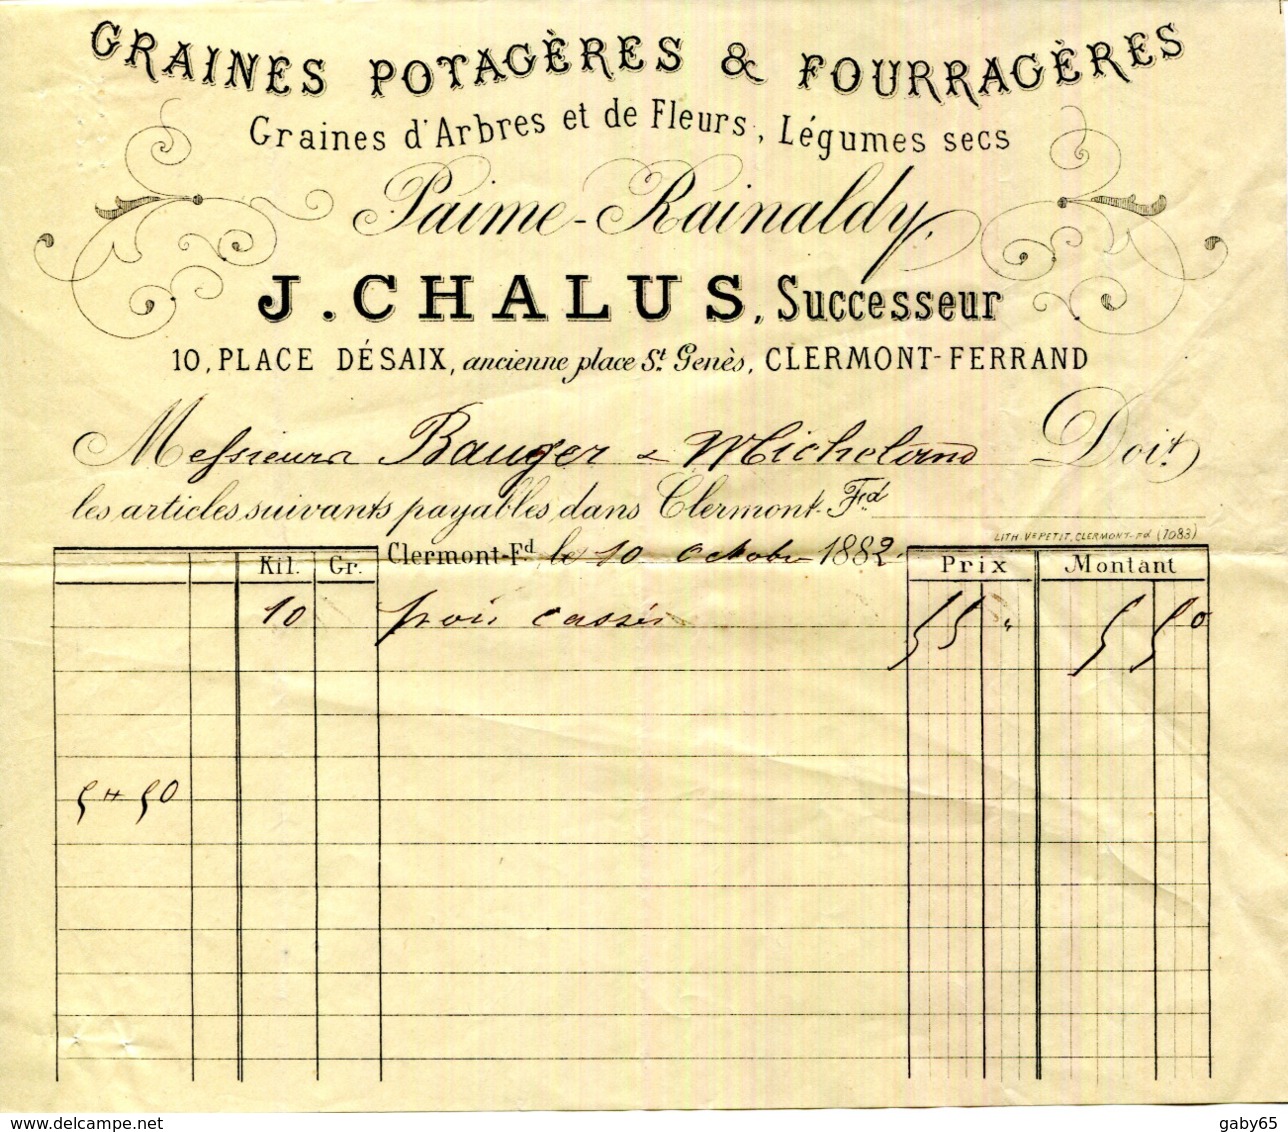 GRAINES POTAGÈRES & FOURRAGÈRES
Graines d'Arbres et de Fleurs, Légumes secs
Paime-Rainaldy,
J. CHALUS, Successeur
10, PLACE DÉSAIX, ancienne place St. Genès, CLERMONT-FERRAND
Messieurs Bauger & Micheland Doit
les articles suivants payables dans Clermont-Fd
LITH. Ve PETIT, CLERMONT-Fd (7083)
Clermont-Fd, le 10 Octobre 1882
Kil. Gr. Prix Montant
10 pois cassés 55 " 5 50
5 " 50
delcampe.net
gaby65